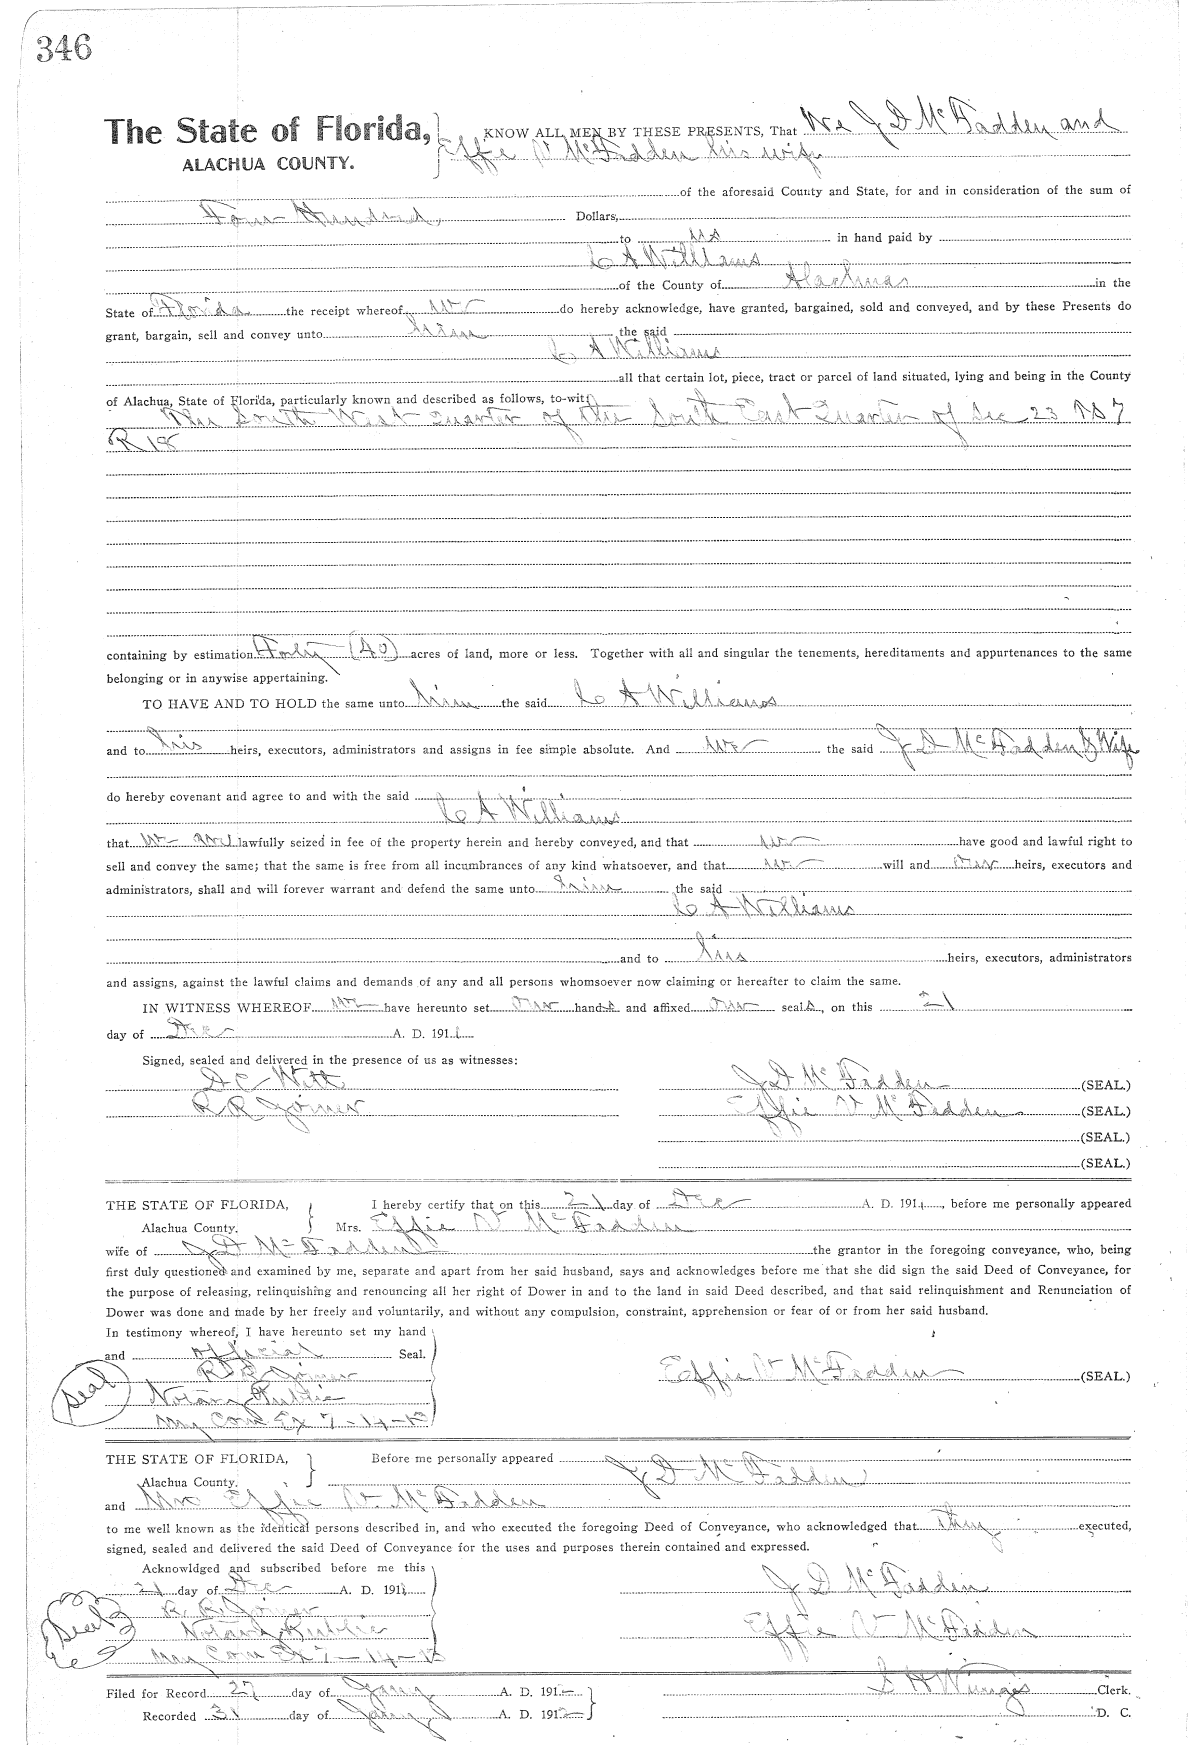 346
The State of Florida, KNOW ALL MEN BY THESE PRESENTS, That We J D McFadden and
ALACHUA COUNTY. Effie V McFadden his wife
of the aforesaid County and State, for and in consideration of the sum of
Four Hundred Dollars,
to us in hand paid by
C A Williams
of the County of Alachua in the
State of Florida the receipt whereof we do hereby acknowledge, have granted, bargained, sold and conveyed, and by these Presents do
grant, bargain, sell and convey unto him the said
C A Williams
all that certain lot, piece, tract or parcel of land situated, lying and being in the County
of Alachua, State of Florida, particularly known and described as follows, to-wit:
The South West Quarter of the South East Quarter of Sec 23 T S 7
R 18
containing by estimation Forty (40) acres of land, more or less. Together with all and singular the tenements, hereditaments and appurtenances to the same
belonging or in anywise appertaining.
TO HAVE AND TO HOLD the same unto him the said C A Williams
and to his heirs, executors, administrators and assigns in fee simple absolute. And we the said J D McFadden & Wife
do hereby covenant and agree to and with the said
C A Williams
that we are lawfully seized in fee of the property herein and hereby conveyed, and that we have good and lawful right to
sell and convey the same; that the same is free from all incumbrances of any kind whatsoever, and that we will and our heirs, executors and
administrators, shall and will forever warrant and defend the same unto him the said
C A Williams
and to his heirs, executors, administrators
and assigns, against the lawful claims and demands of any and all persons whomsoever now claiming or hereafter to claim the same.
IN WITNESS WHEREOF we have hereunto set our hands and affixed our seals, on this 21
day of Dec A. D. 1911
Signed, sealed and delivered in the presence of us as witnesses:
D C Witt J D McFadden (SEAL.)
R R Joiner Effie V McFadden (SEAL.)
(SEAL.)
(SEAL.)
THE STATE OF FLORIDA, I hereby certify that on this 21 day of Dec A. D. 1911, before me personally appeared
Alachua County. Mrs. Effie V McFadden
wife of J D McFadden the grantor in the foregoing conveyance, who, being
first duly questioned and examined by me, separate and apart from her said husband, says and acknowledges before me that she did sign the said Deed of Conveyance, for
the purpose of releasing, relinquishing and renouncing all her right of Dower in and to the land in said Deed described, and that said relinquishment and Renunciation of
Dower was done and made by her freely and voluntarily, and without any compulsion, constraint, apprehension or fear of or from her said husband.
In testimony whereof, I have hereunto set my hand
and official Seal.
Seal R R Joiner Effie V McFadden (SEAL.)
Notary Public
My Com Ex 7-14-13
THE STATE OF FLORIDA, Before me personally appeared J D McFadden
Alachua County.
and Mrs Effie V McFadden
to me well known as the identical persons described in, and who executed the foregoing Deed of Conveyance, who acknowledged that they executed,
signed, sealed and delivered the said Deed of Conveyance for the uses and purposes therein contained and expressed.
Acknowldged and subscribed before me this
21 day of Dec A. D. 1911 J D McFadden
R. R. Joiner
Seal Notary Public Effie V McFadden
My Com Ex 7-14-13
Filed for Record 27 day of Jany A. D. 1912 Clerk.
Recorded 31 day of Jany A. D. 1912 D. C.